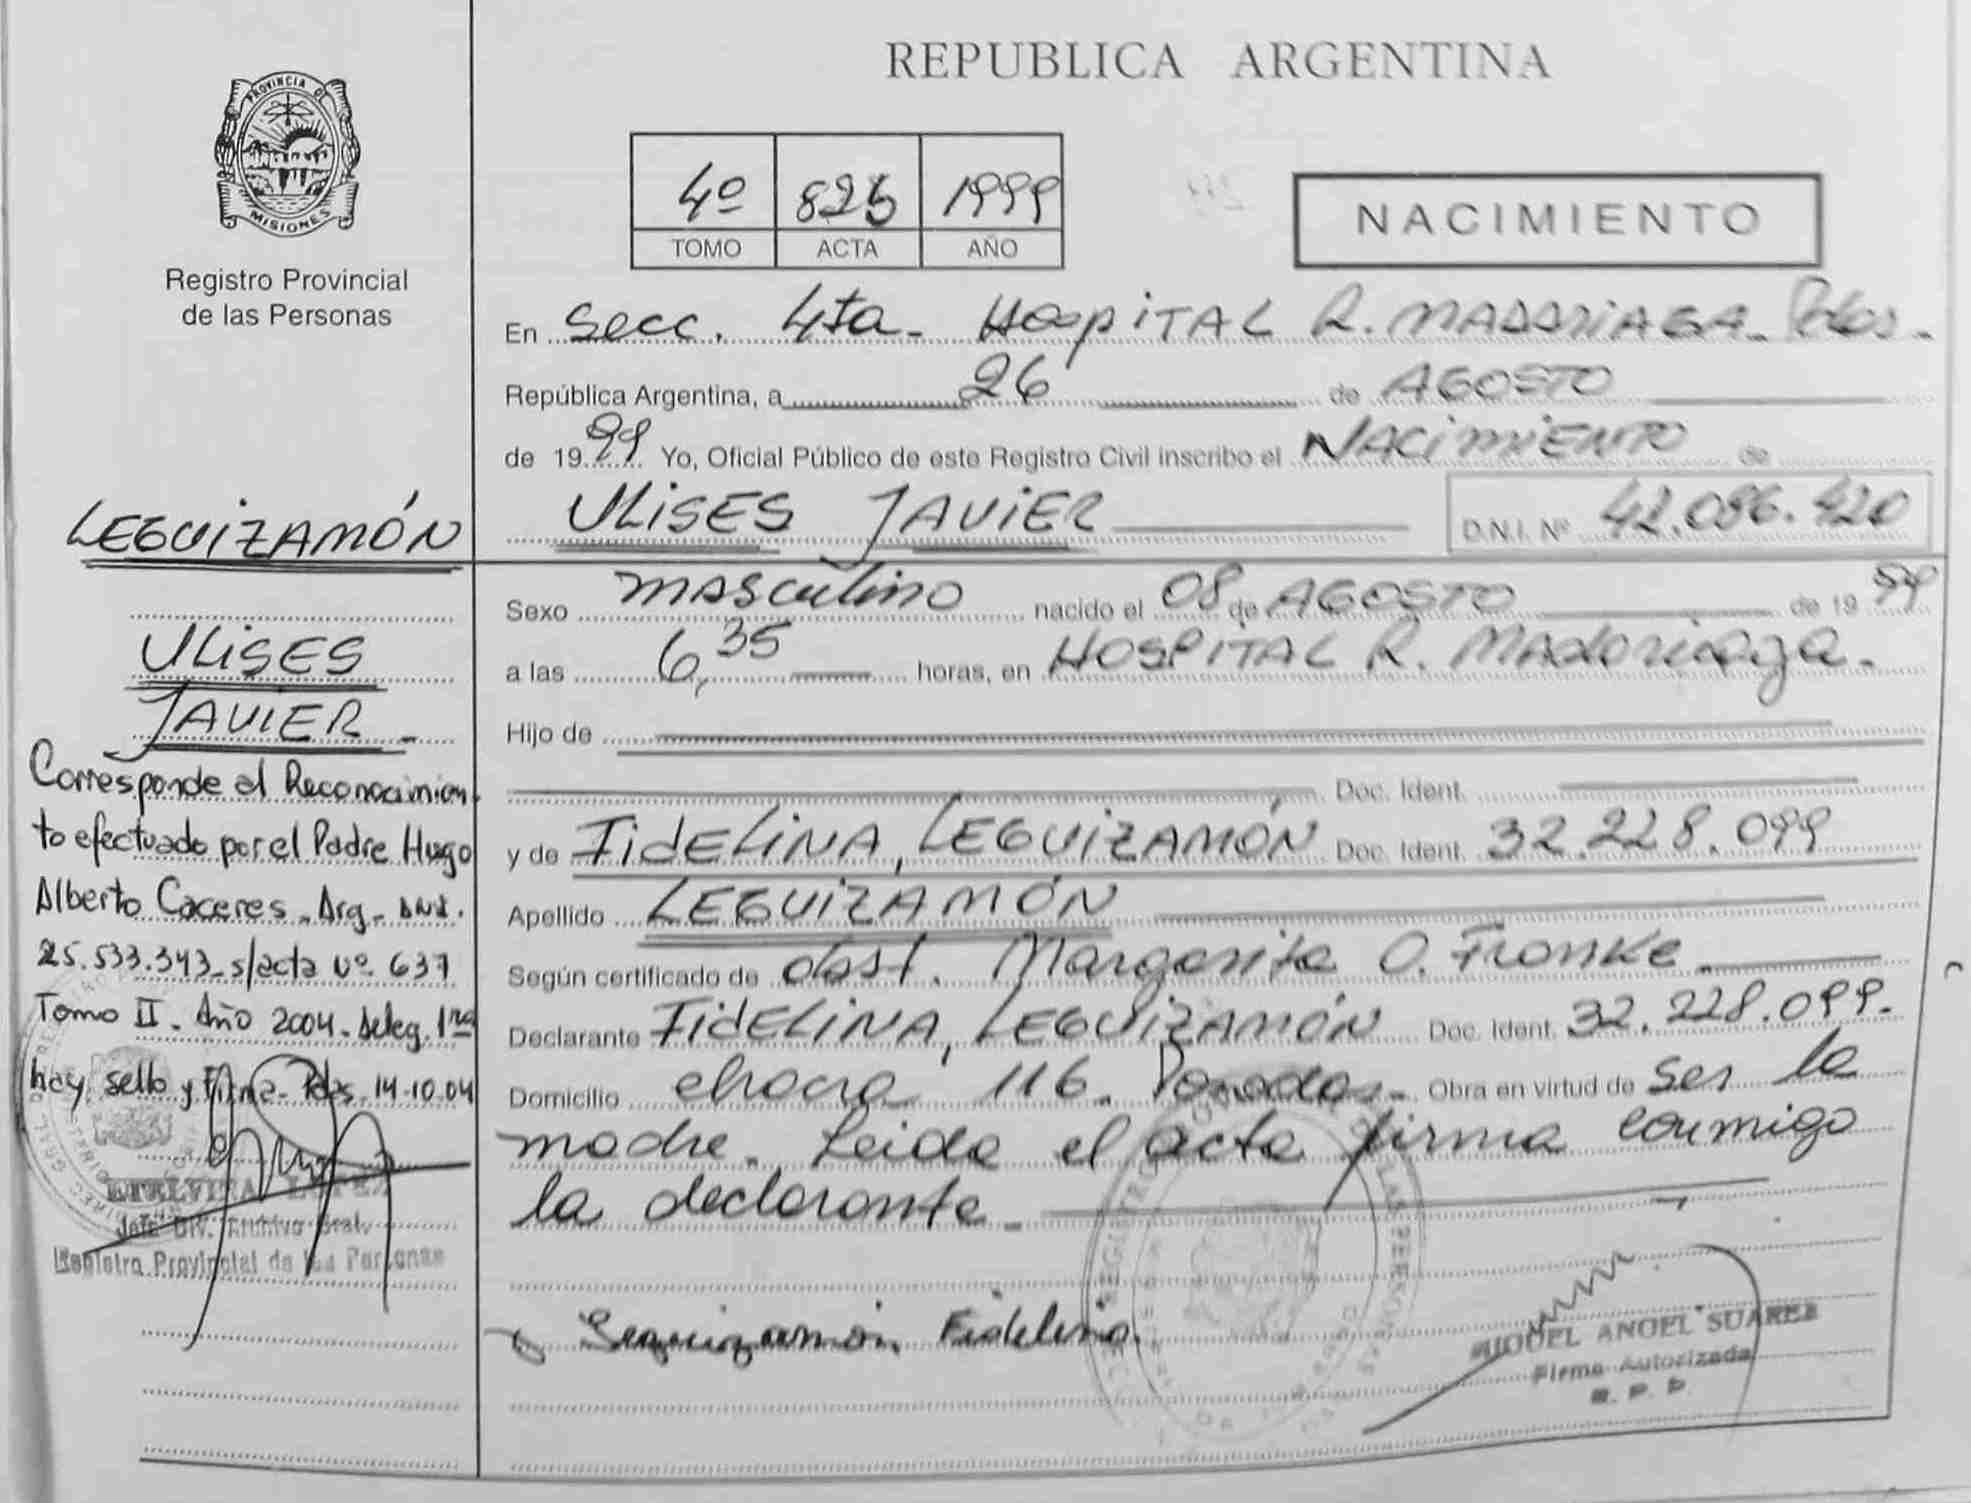 REPUBLICA ARGENTINA
PROVINCIA DE
MISIONES
Registro Provincial
de las Personas
4º 1999
TOMO ACTA AÑO
NACIMIENTO
En Secc. 4ta. HospITAL R. MADARIAGA. Pdas.
República Argentina, a 26 de AGOSTO
de 1999 Yo, Oficial Público de este Registro Civil inscribo el NACIMIENTO de
ULISES JAVIER D.N.I. Nº 42.086.420
LEGUIZAMÓN
ULISES
JAVIER
Corresponde al Reconocimien
to efectuado por el Padre Hugo
Alberto Caceres. Arg. DNI.
25.533.343. s/acta Nº 637
Tomo II. Año 2004. Deleg. 1ra
hay sello y Firma. Pdas. 14.10.04
ETELVINA LOPEZ
Jefe Div. Archivo Gral.
Registro Provincial de las Personas
Sexo masculino nacido el 08 de AGOSTO de 1999
a las 6,35 horas, en HOSPITAL R. Madariaga.
Hijo de
Doc. Ident.
y de FIDELINA, LEGUIZAMÓN Doc. Ident. 32.228.099
Apellido LEGUIZAMÓN
Según certificado de obst. Margarita O. Fronke
Declarante FIDELINA, LEGUIZAMÓN Doc. Ident. 32.228.099.
Domicilio chacra 116. Posadas. Obra en virtud de ser la
madre. Leida el acta firma conmigo
la declarante.
Leguizamón Fidelina.
MIGUEL ANGEL SUAREZ
Firma Autorizada
R. P. P.